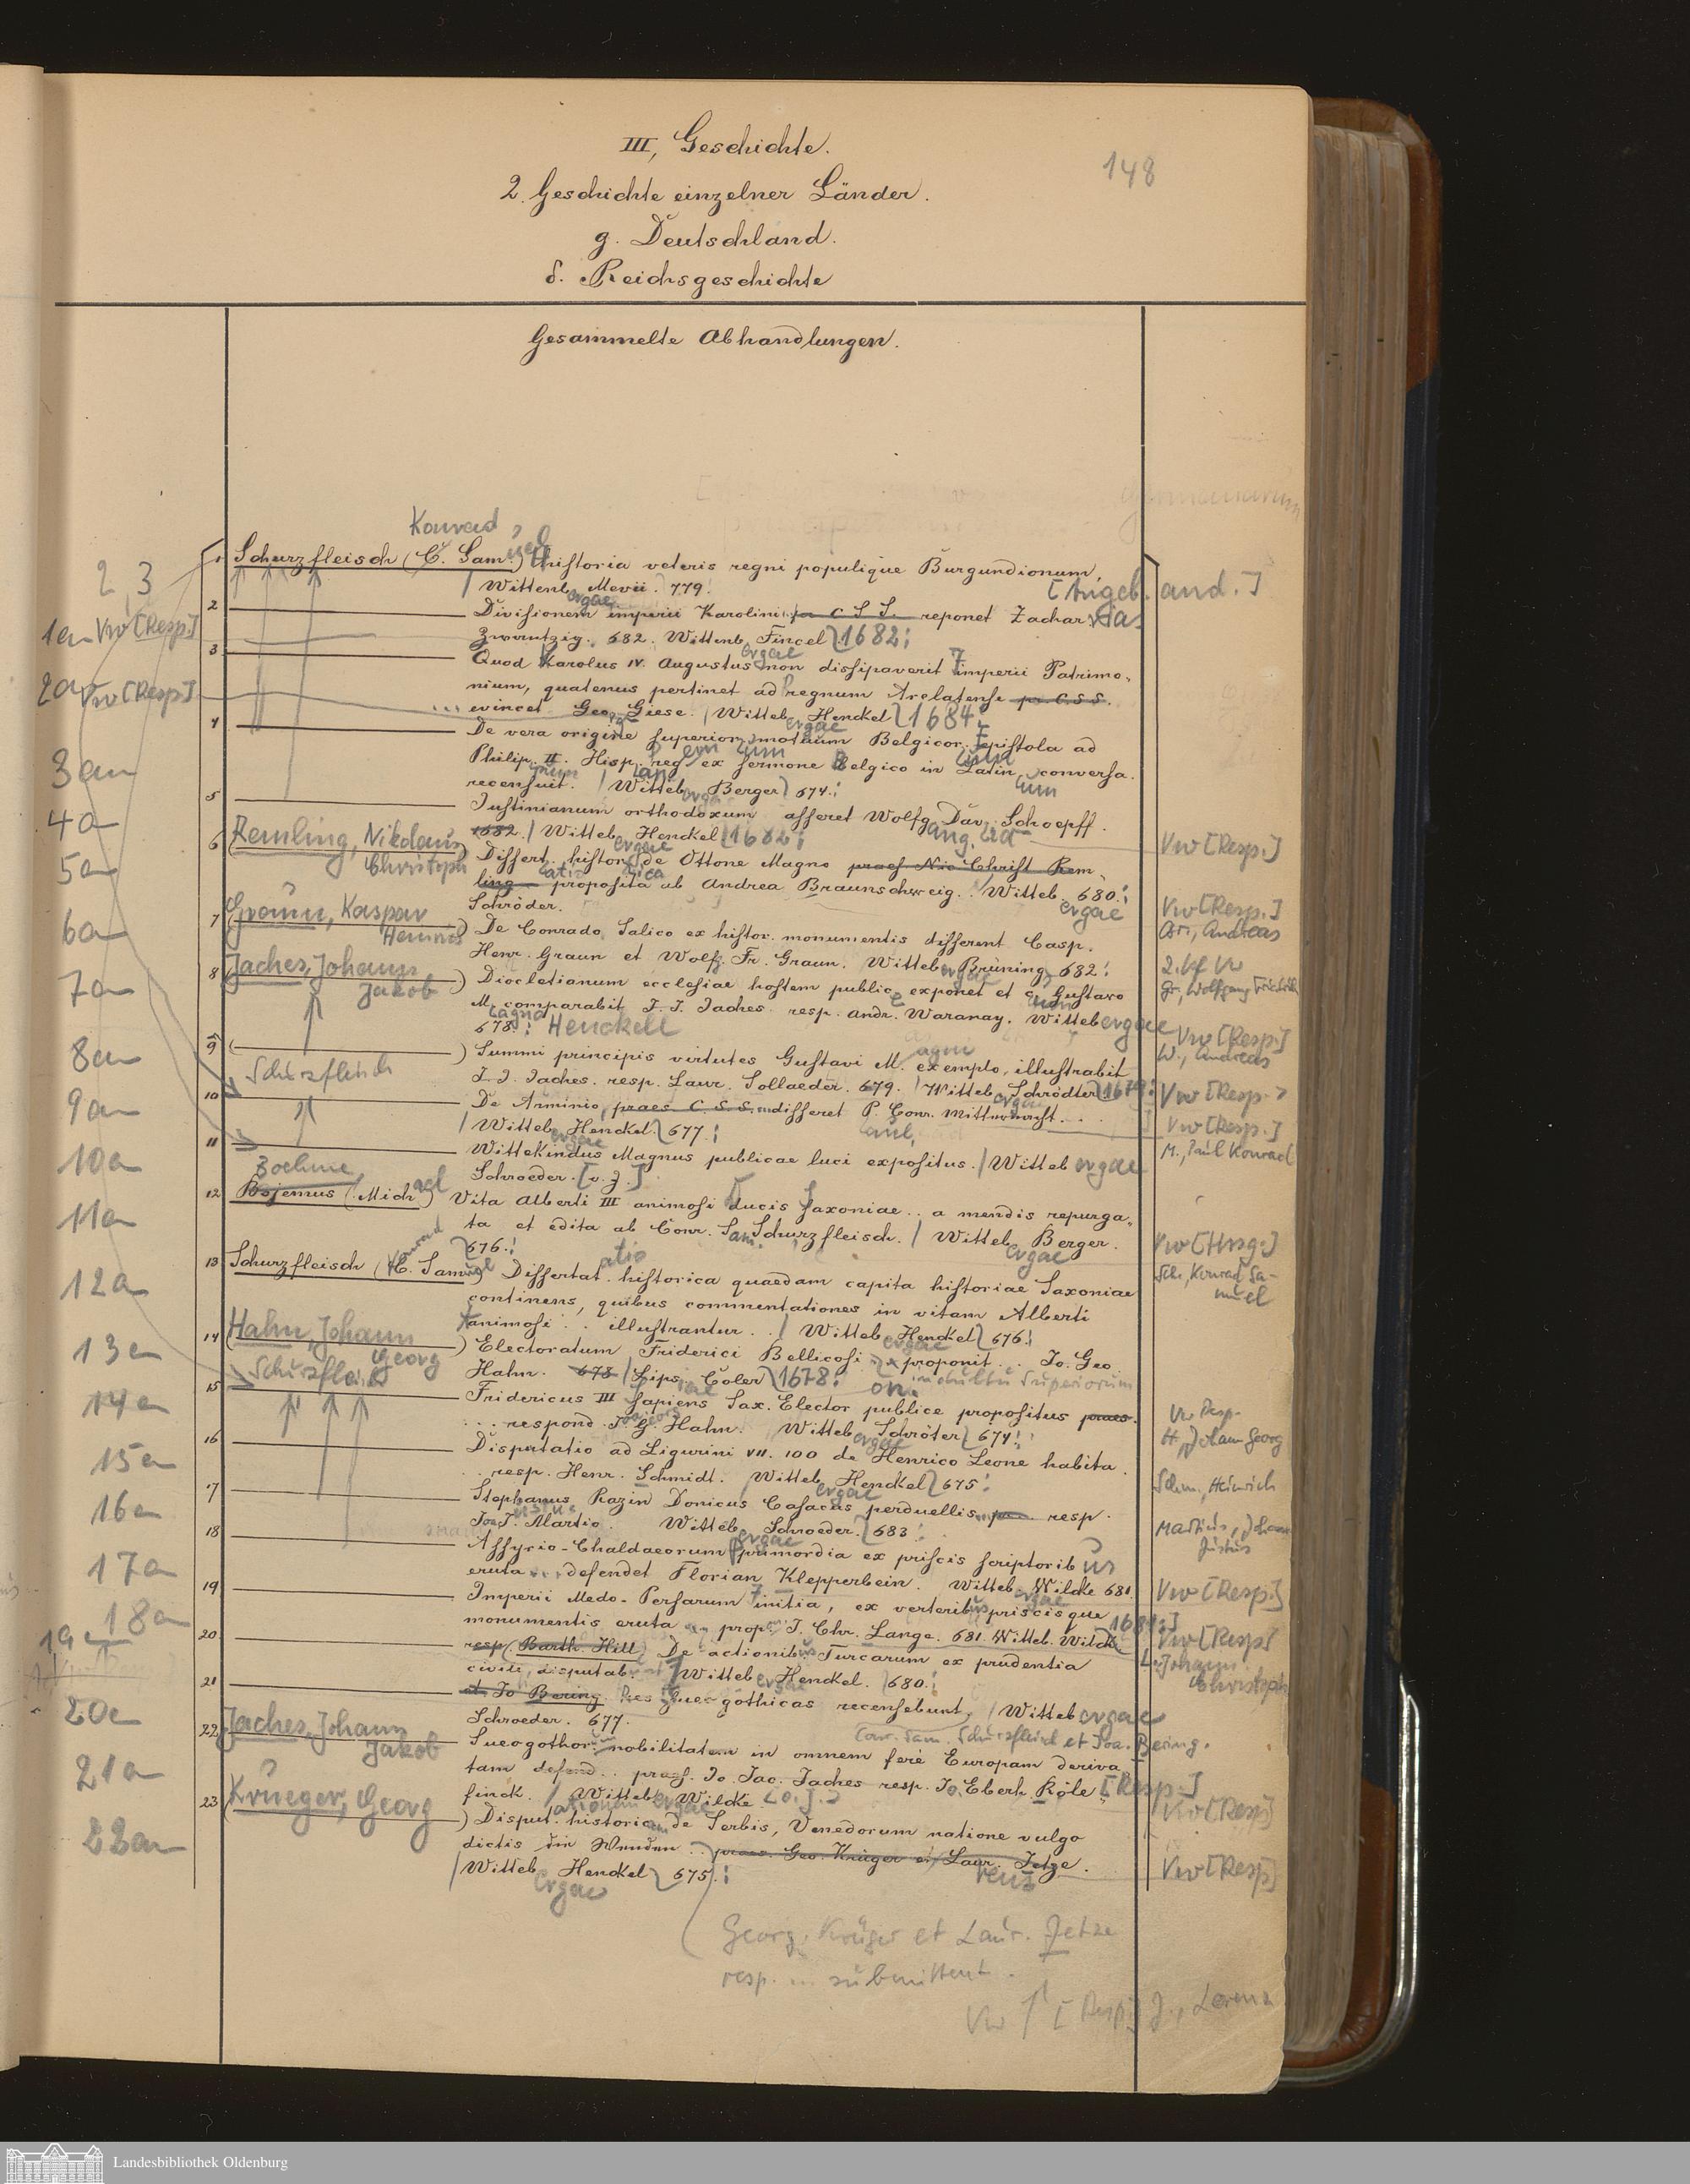 III, Geschichte.
148
2. Geschichte einzelner Länder.
g. Deutschland.
δ. Reichsgeschichte
Gesammelte Abhandlungen.
Konrad
1 Schurzfleisch (C. Sam.) Historia veteris regni populique Burgundionum,
2 3
/ Wittenb. Mevii. 779. [Angeb. and.]
2 Divisionem imperii Karolini pr. C. S. S. reponet Zacharias
1a Vw [Resp.]
Zwantzig. 682. Wittenb. Fincel 1682.
3 Quod Karolus IV. Augustus non dissipaverit imperii Patrimo-
2a Vw [Resp.]
nium, quatenus pertinet ad regnum Arelatense pr. C. S. S.
... evincet Geo. Giese. / Witteb. Henckel 1684.
4 De vera origine superior. motuum Belgicor. Epistola ad
3a
Philip. II. Hisp. reg. ex sermone Belgico in Latin. conversa.
recensuit. / Witteb. Berger 674.
5 Justinianum orthodoxum asseret Wolfg. Dav. Schoepff.
4a
1682 / Witteb. Henckel 1682. Vw [Resp.]
6 Remling, Nikolaus Christoph) Dissert. histor. de Ottone Magno praes. Nic. Christ. Rem-
5a
ling proposita ab Andrea Braunschweig. Witteb. 680.
Schröder. Vw [Resp.]
Br., Andreas
7 Graun, Kaspar Heinrich) De Conrado Salico ex histor. monumentis disserent Casp.
6a
Henr. Graun et Wolfg. Fr. Graun. Witteb. Brüning 682. 2. Vf Vw
Gr., Wolfgang Friedrich
8 Jaches, Johann Jakob) Diocletianum ecclesiae hostem publice exponet et c. Gustavo
7a
M. comparabit J. J. Jaches. resp. Andr. Waranay. Wittebergae
678. Henckell Vw [Resp.]
W., Andreas
9 ( ) Summi principis virtutes Gustavi M. exemplo, illustrabit
8a
J. J. Jaches. resp. Laur. Sollaeder. 679. / Witteb. Schrödter 1679. Vw [Resp.]
Schurzfleisch
10 De Arminio praes. C. S. S. disseret P. Conr. Mitternacht.
9a
/ Witteb. Henckel. 677. Vw [Resp.]
M., Paul Konrad
11 Wittekindus Magnus publicae luci expositus. / Wittebergae
10a
Schroeder. [o. J.]
Boehme,
12 Bojemus (Michael) Vita Alberti III animosi ducis Saxoniae .. a mendis repurga-
11a
ta et edita ab Conr. Sam. Schurzfleisch. / Witteb. Berger. Vw [Hrsg.]
676. Sch., Konrad Sa-
muel
13 Schurzfleisch (C. Samuel) Dissertat. historica quaedam capita historiae Saxoniae
12a
continens, quibus commentationes in vitam Alberti
animosi .. illustrantur .. / Witteb. Henckel 676.
14 Hahn, Johann Georg) Electoratum Friderici Bellicosi proponit .. Jo. Geo.
13a
Hahn. 678 / Lips. Coler 1678.
Schurzfleisch
15 Fridericus III Sapiens Sax. Elector publice propositus praes.
14a
... respond. Jo. G. Hahn. Witteb. Schröter 674. Vw Resp.
H., Johann Georg
16 Disputatio ad Ligurini VII. 100 de Henrico Leone habita.
15a
.. resp. Henr. Schmidt. / Witteb. Henckel 675. Schm., Heinrich
17 Stephanus Razin Donicus Casacus perduellis resp.
16a
Joa. J. Martio. Witteb. Schroeder. 683. Martius, Johann
Justus
18 Assyrio-Chaldaeorum primordia ex priscis scriptoribus
17a
eruta defendet Florian Klepperbein. Witteb. Wilcke 681. Vw [Resp.]
19 Imperii Medo-Persarum initia, ex veteribus priscisque
18a
monumentis eruta prop. J. Chr. Lange. 681. Witteb. Wilcke 1681. Vw [Resp.]
L., Johann
Christoph
20 resp. (Barth. Hill) De actionibus Turcarum ex prudentia
19a
civili disputab. / Witteb. Henckel. 680.
21 et Jo. Bering. Res Sueogothicas recensebunt. / Wittebergae
20a
Schroeder. 677. Conr. Sam. Schurzfleisch et Joa. Bering.
22 Jaches, Johann Jakob Sueogothor. nobilitatem in omnem fere Europam deriva-
21a
tam defend. .. praes. Jo. Jac. Jaches resp. Jo. Eberh. Röle- [Resp.]
finck. / Witteb. Wilcke. [o. J.] Vw [Resp.]
23 Krueger, Georg) Disput. historica de Serbis, Venedorum natione vulgo
22a
dictis die Wenden .. praes. Geo. Krüger et Laur. Jetze.
/ Witteb. Henckel 675. Vw [Resp.]
Georg. Krüger et Laur. Jetze
resp. ... submittent.
Vw [Resp.] J., Lorenz
Landesbibliothek Oldenburg